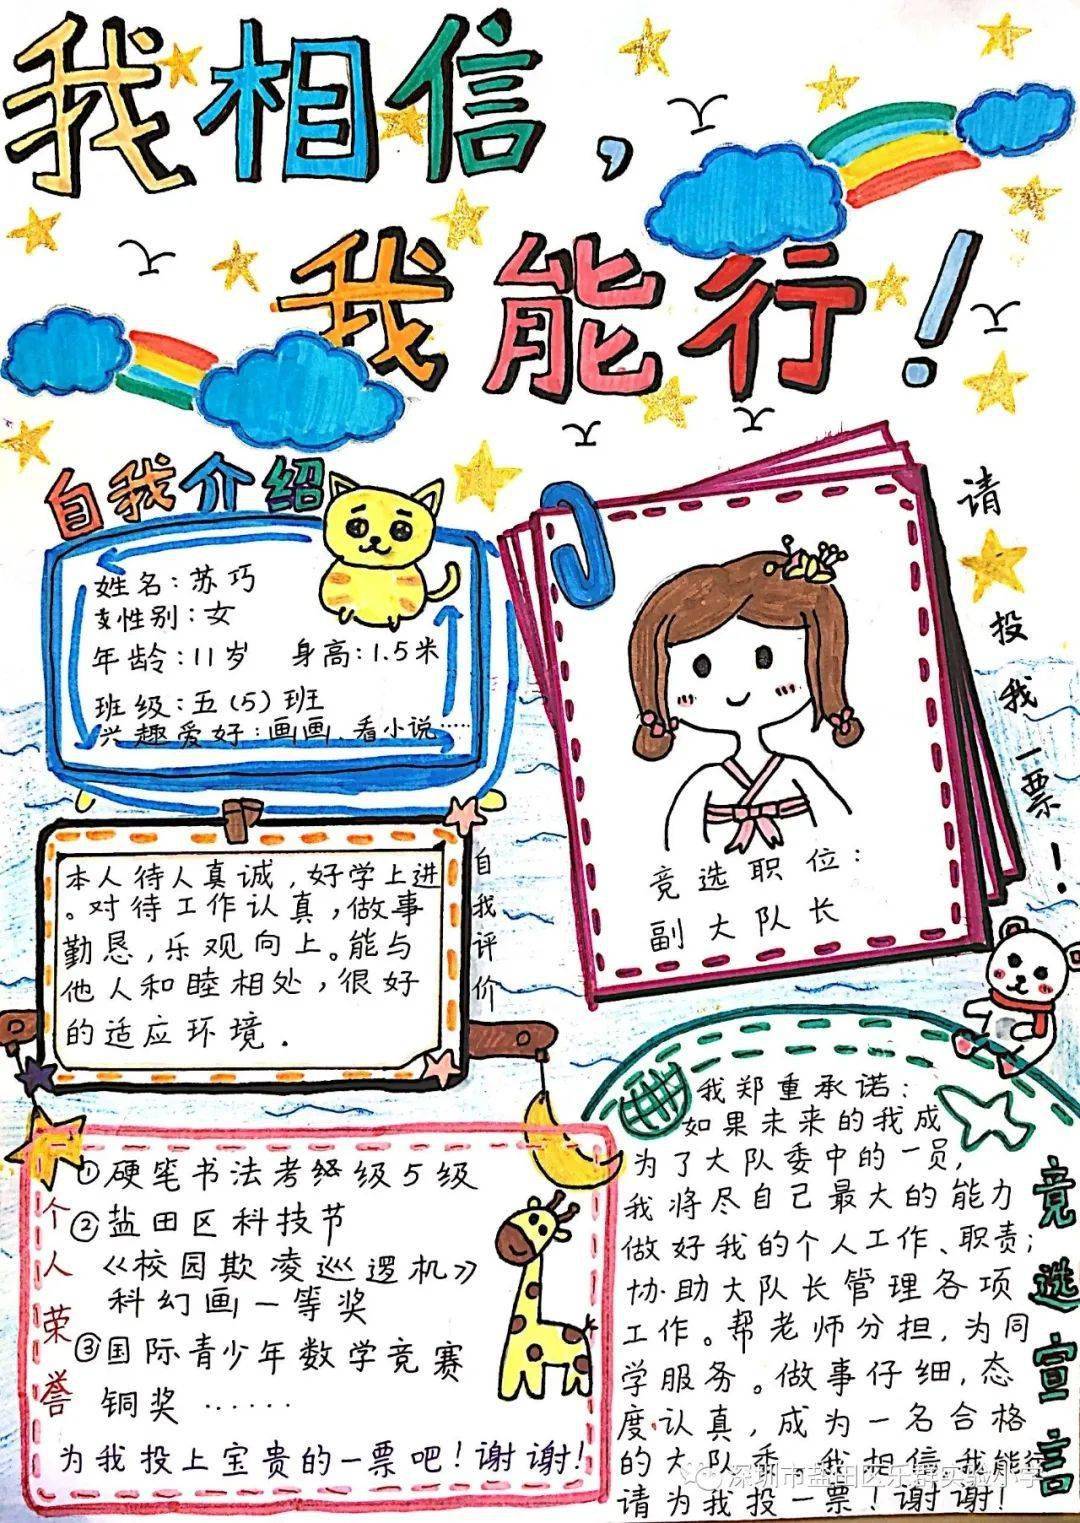 我相信，
我能行！
自我介绍
姓名：苏巧
性别：女
年龄：11岁 身高：1.5米
班级：五(5)班
兴趣爱好：画画、看小说……
请投我一票！
竞选职位：
副大队长
自我评价
本人待人真诚，好学上进
。对待工作认真，做事
勤恳，乐观向上。能与
他人和睦相处，很好
的适应环境.
个人荣誉
①硬笔书法考级5级
②盐田区科技节
《校园欺凌巡逻机》
科幻画一等奖
③国际青少年数学竞赛
铜奖……
为我投上宝贵的一票吧！谢谢！
竞选宣言
我郑重承诺：
如果未来的我成
为了大队委中的一员，
我将尽自己最大的能力
做好我的个人工作、职责；
协助大队长管理各项
工作。帮老师分担，为同
学服务。做事仔细，态
度认真，成为一名合格
的大队委。我相信，我能行
请为我投一票！谢谢！
深圳市盐田区乐群实验小学